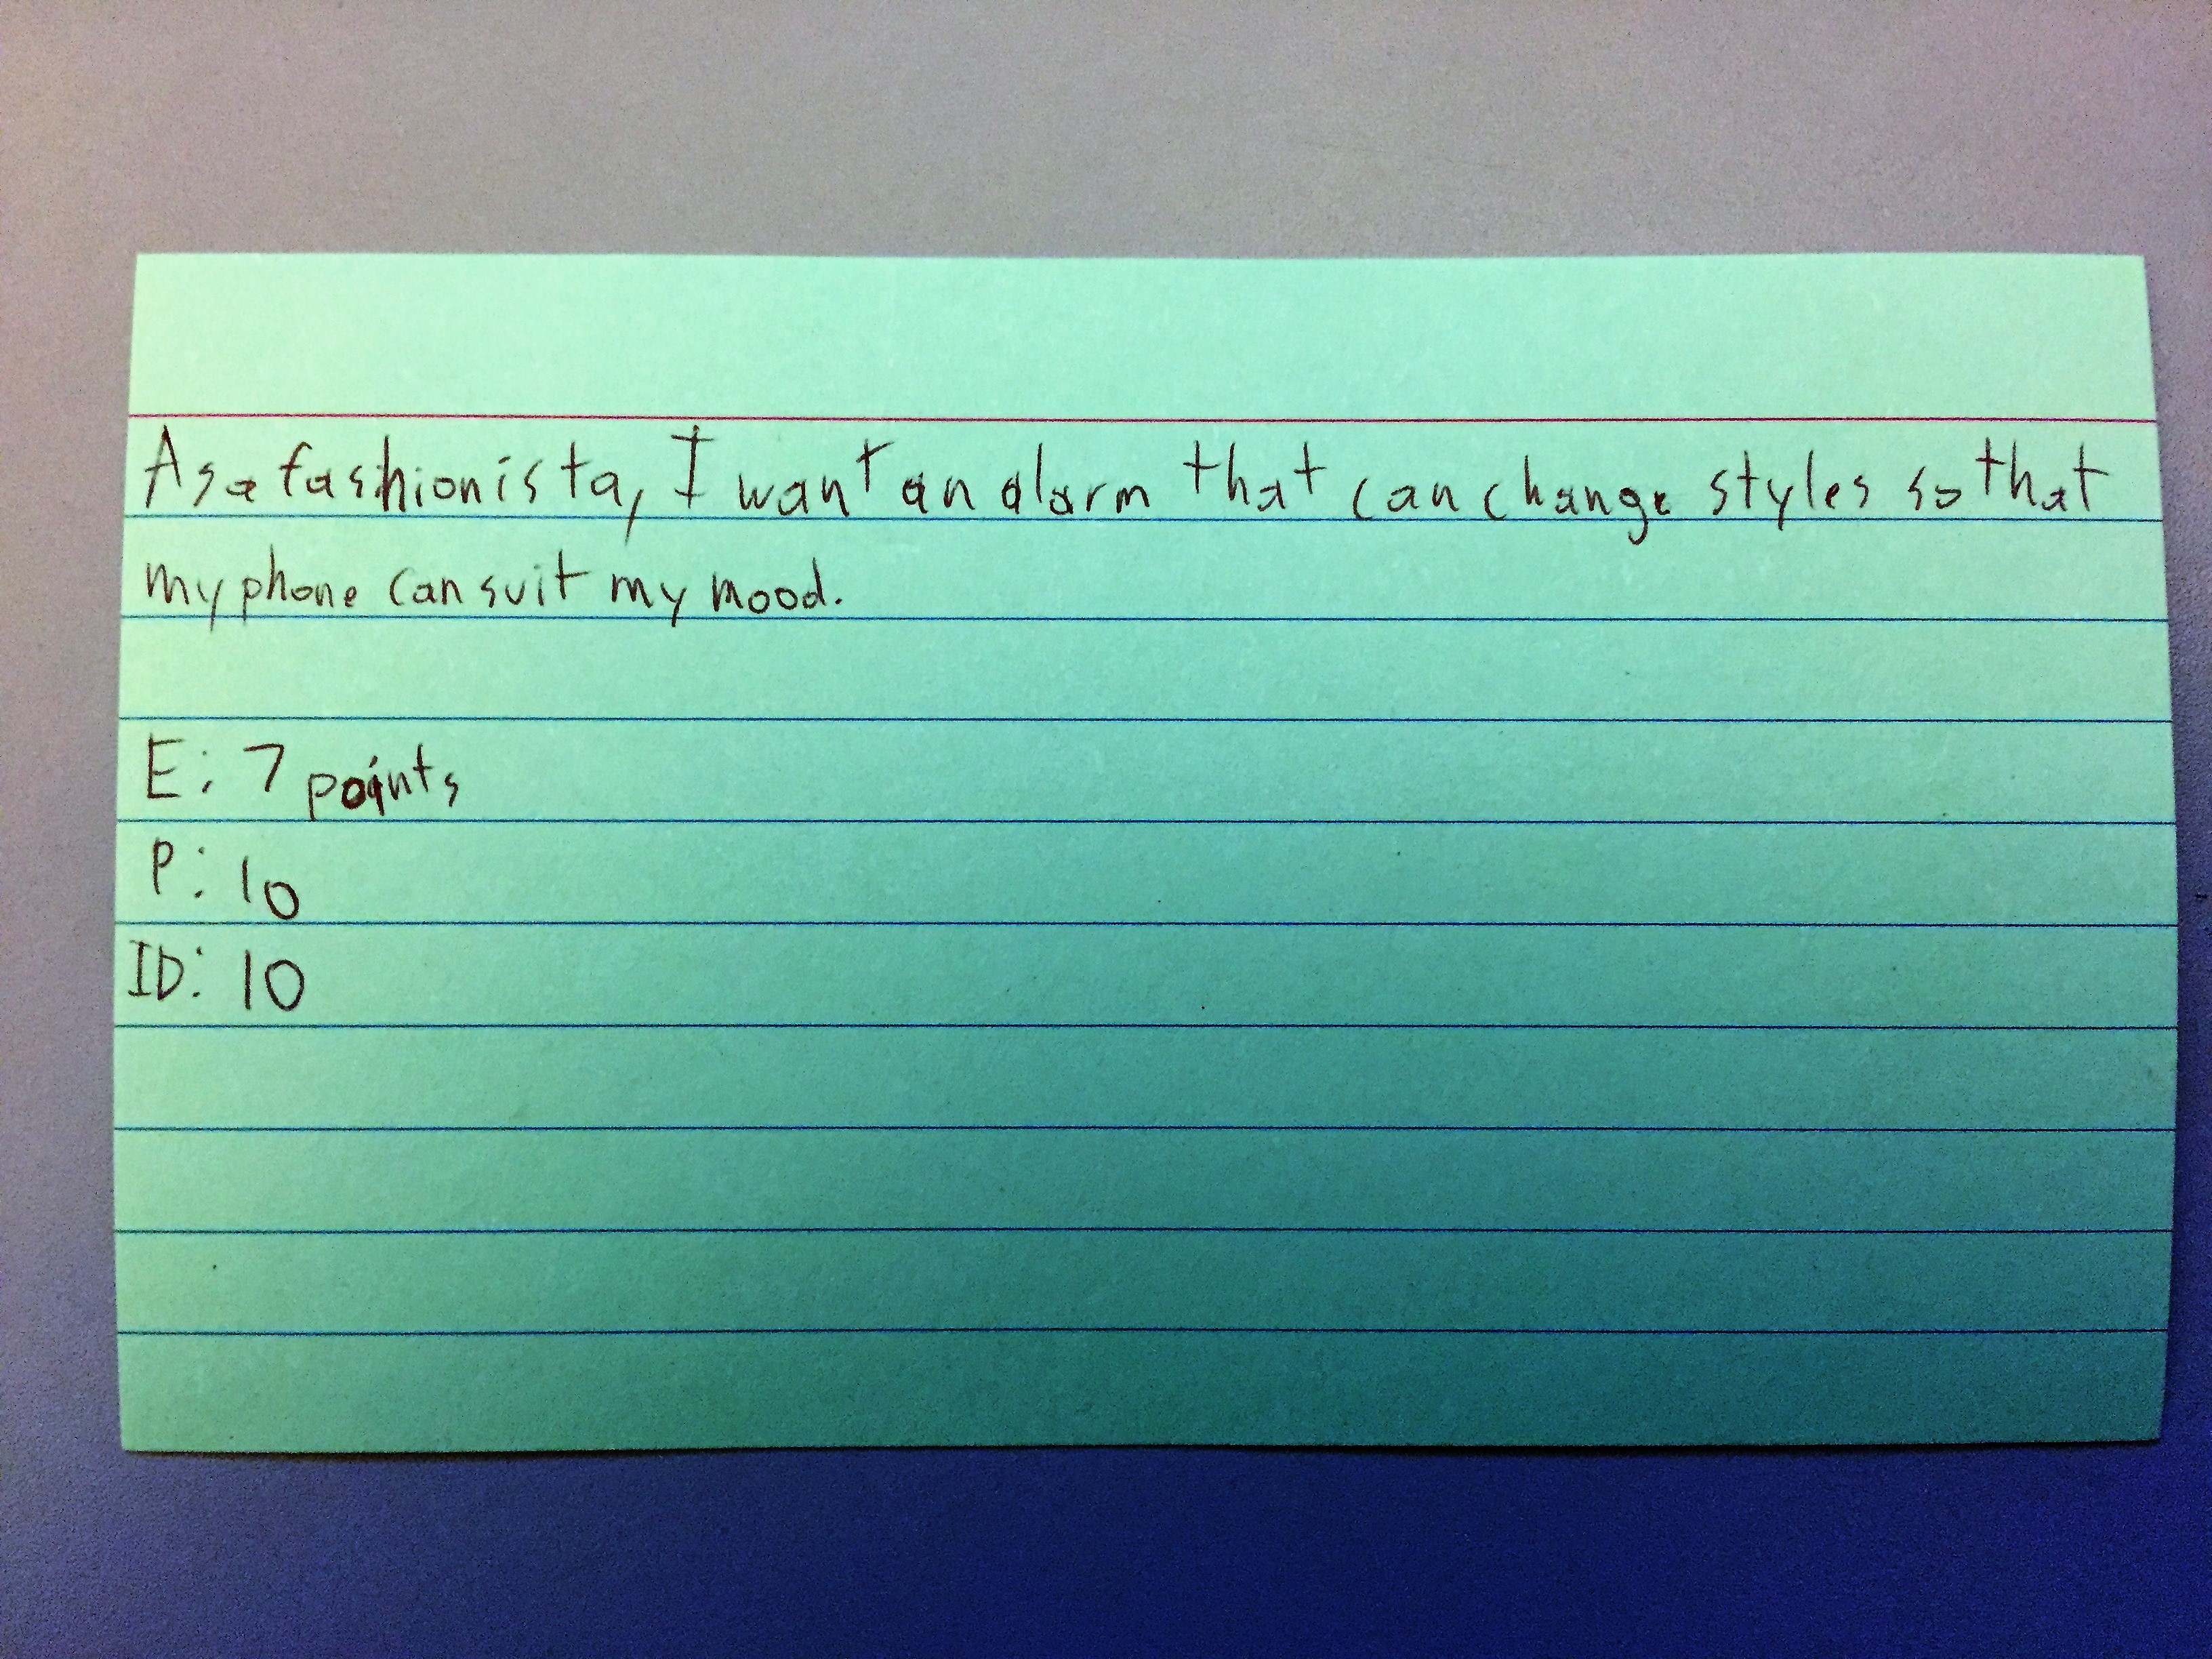 As a fashionista, I want an alarm that can change styles so that
my phone can suit my mood.
E: 7 points
P: 10
ID: 10